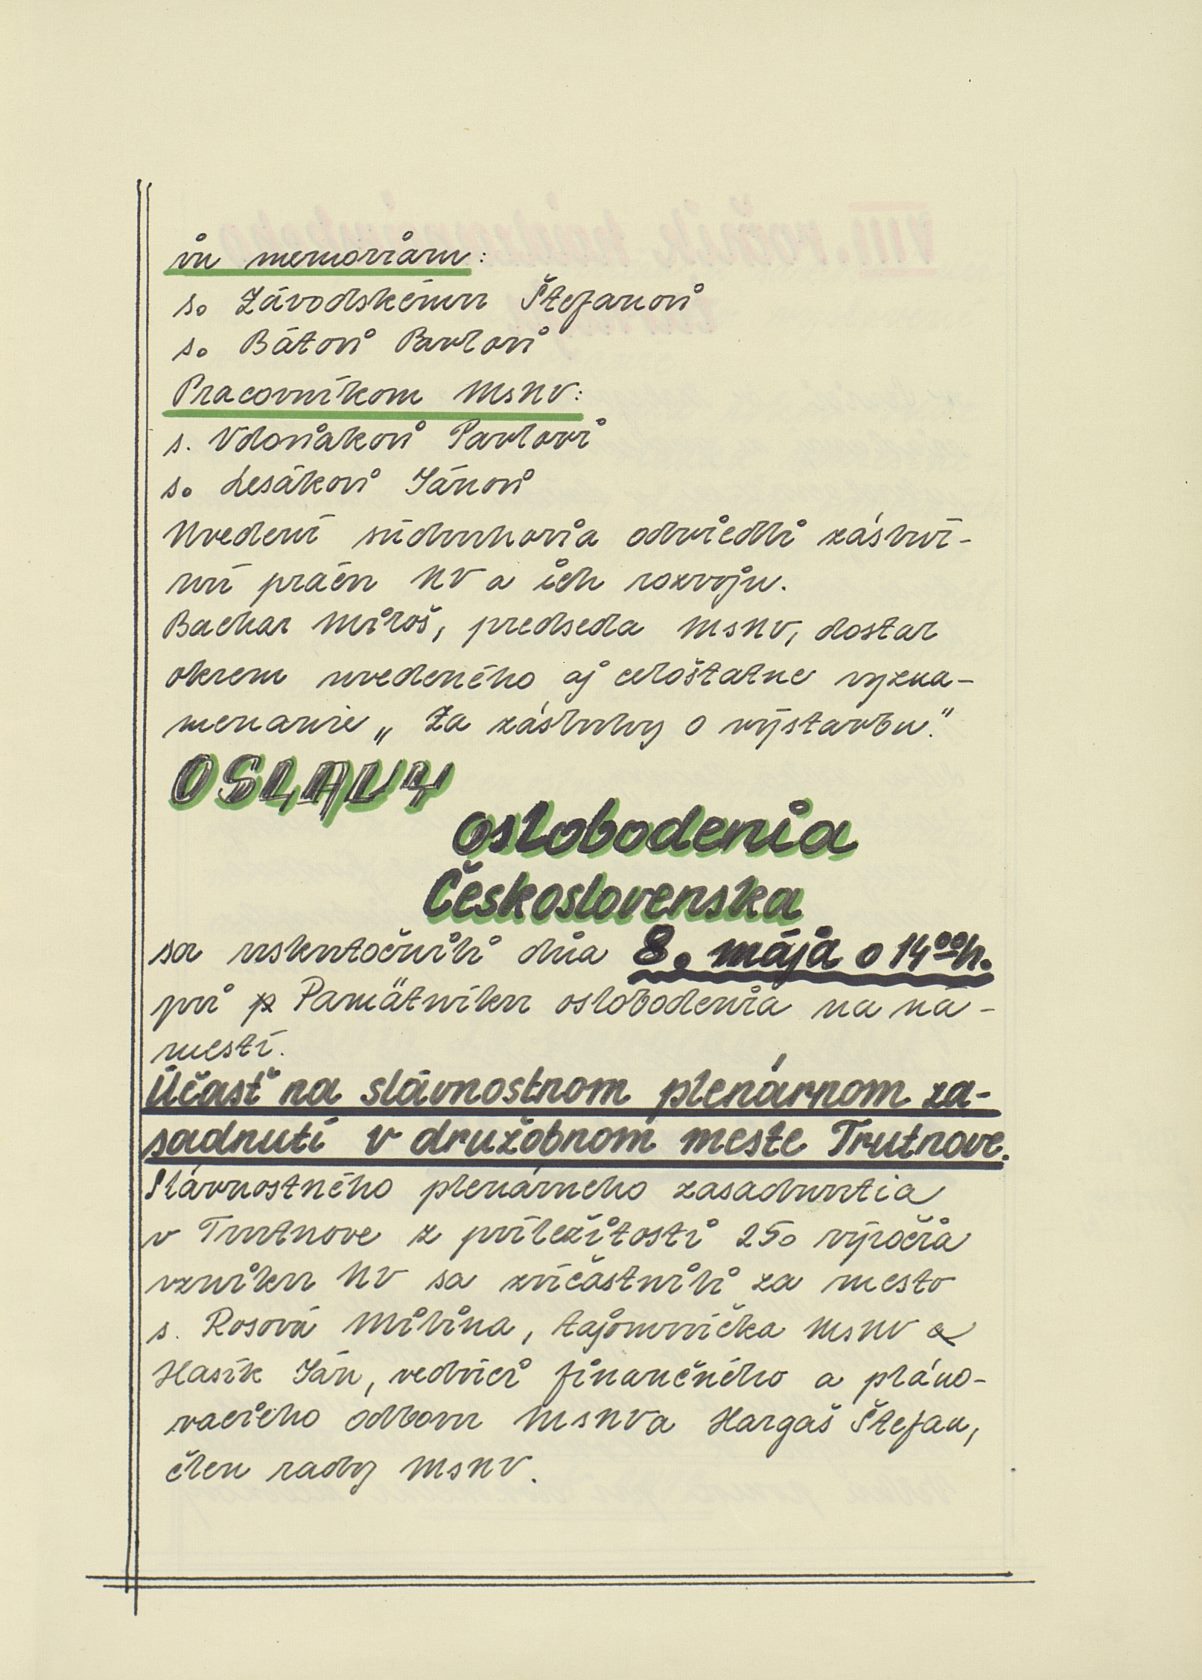 in memoriam:
s. Závodskému Štefanovi
s. Bátovi Pavlovi
Pracovníkom MsNV:
s. Vdoviakovi Pavlovi
s. Lesákovi Jánovi
Uvedení súdruhovia odviedli záslui-
nú prácu NV a ich rozvoju.
Bachar Miloš, predseda MsNV, dostal
okrem uvedeného aj celoštátne vyzna-
menanie „Za zásluhy o výstavbu."
OSLAVY
oslobodenia
Československa
sa uskutočnili dňa 8. mája o 14⁰⁰h.
pri Pamätníku oslobodenia na ná-
mestí.
Účasť na slávnostnom plenárnom za-
sadnutí v družobnom meste Trutnove.
Slávnostného plenárneho zasadnutia
v Trutnove z príležitosti 25. výročia
vzniku NV sa zúčastnili za mesto
s. Rosová Milina, tajomníčka MsNV a
Hasík Ján, vedúci finančného a pláno-
vacieho odboru MsNV a Hargaš Štefan,
člen rady MsNV.